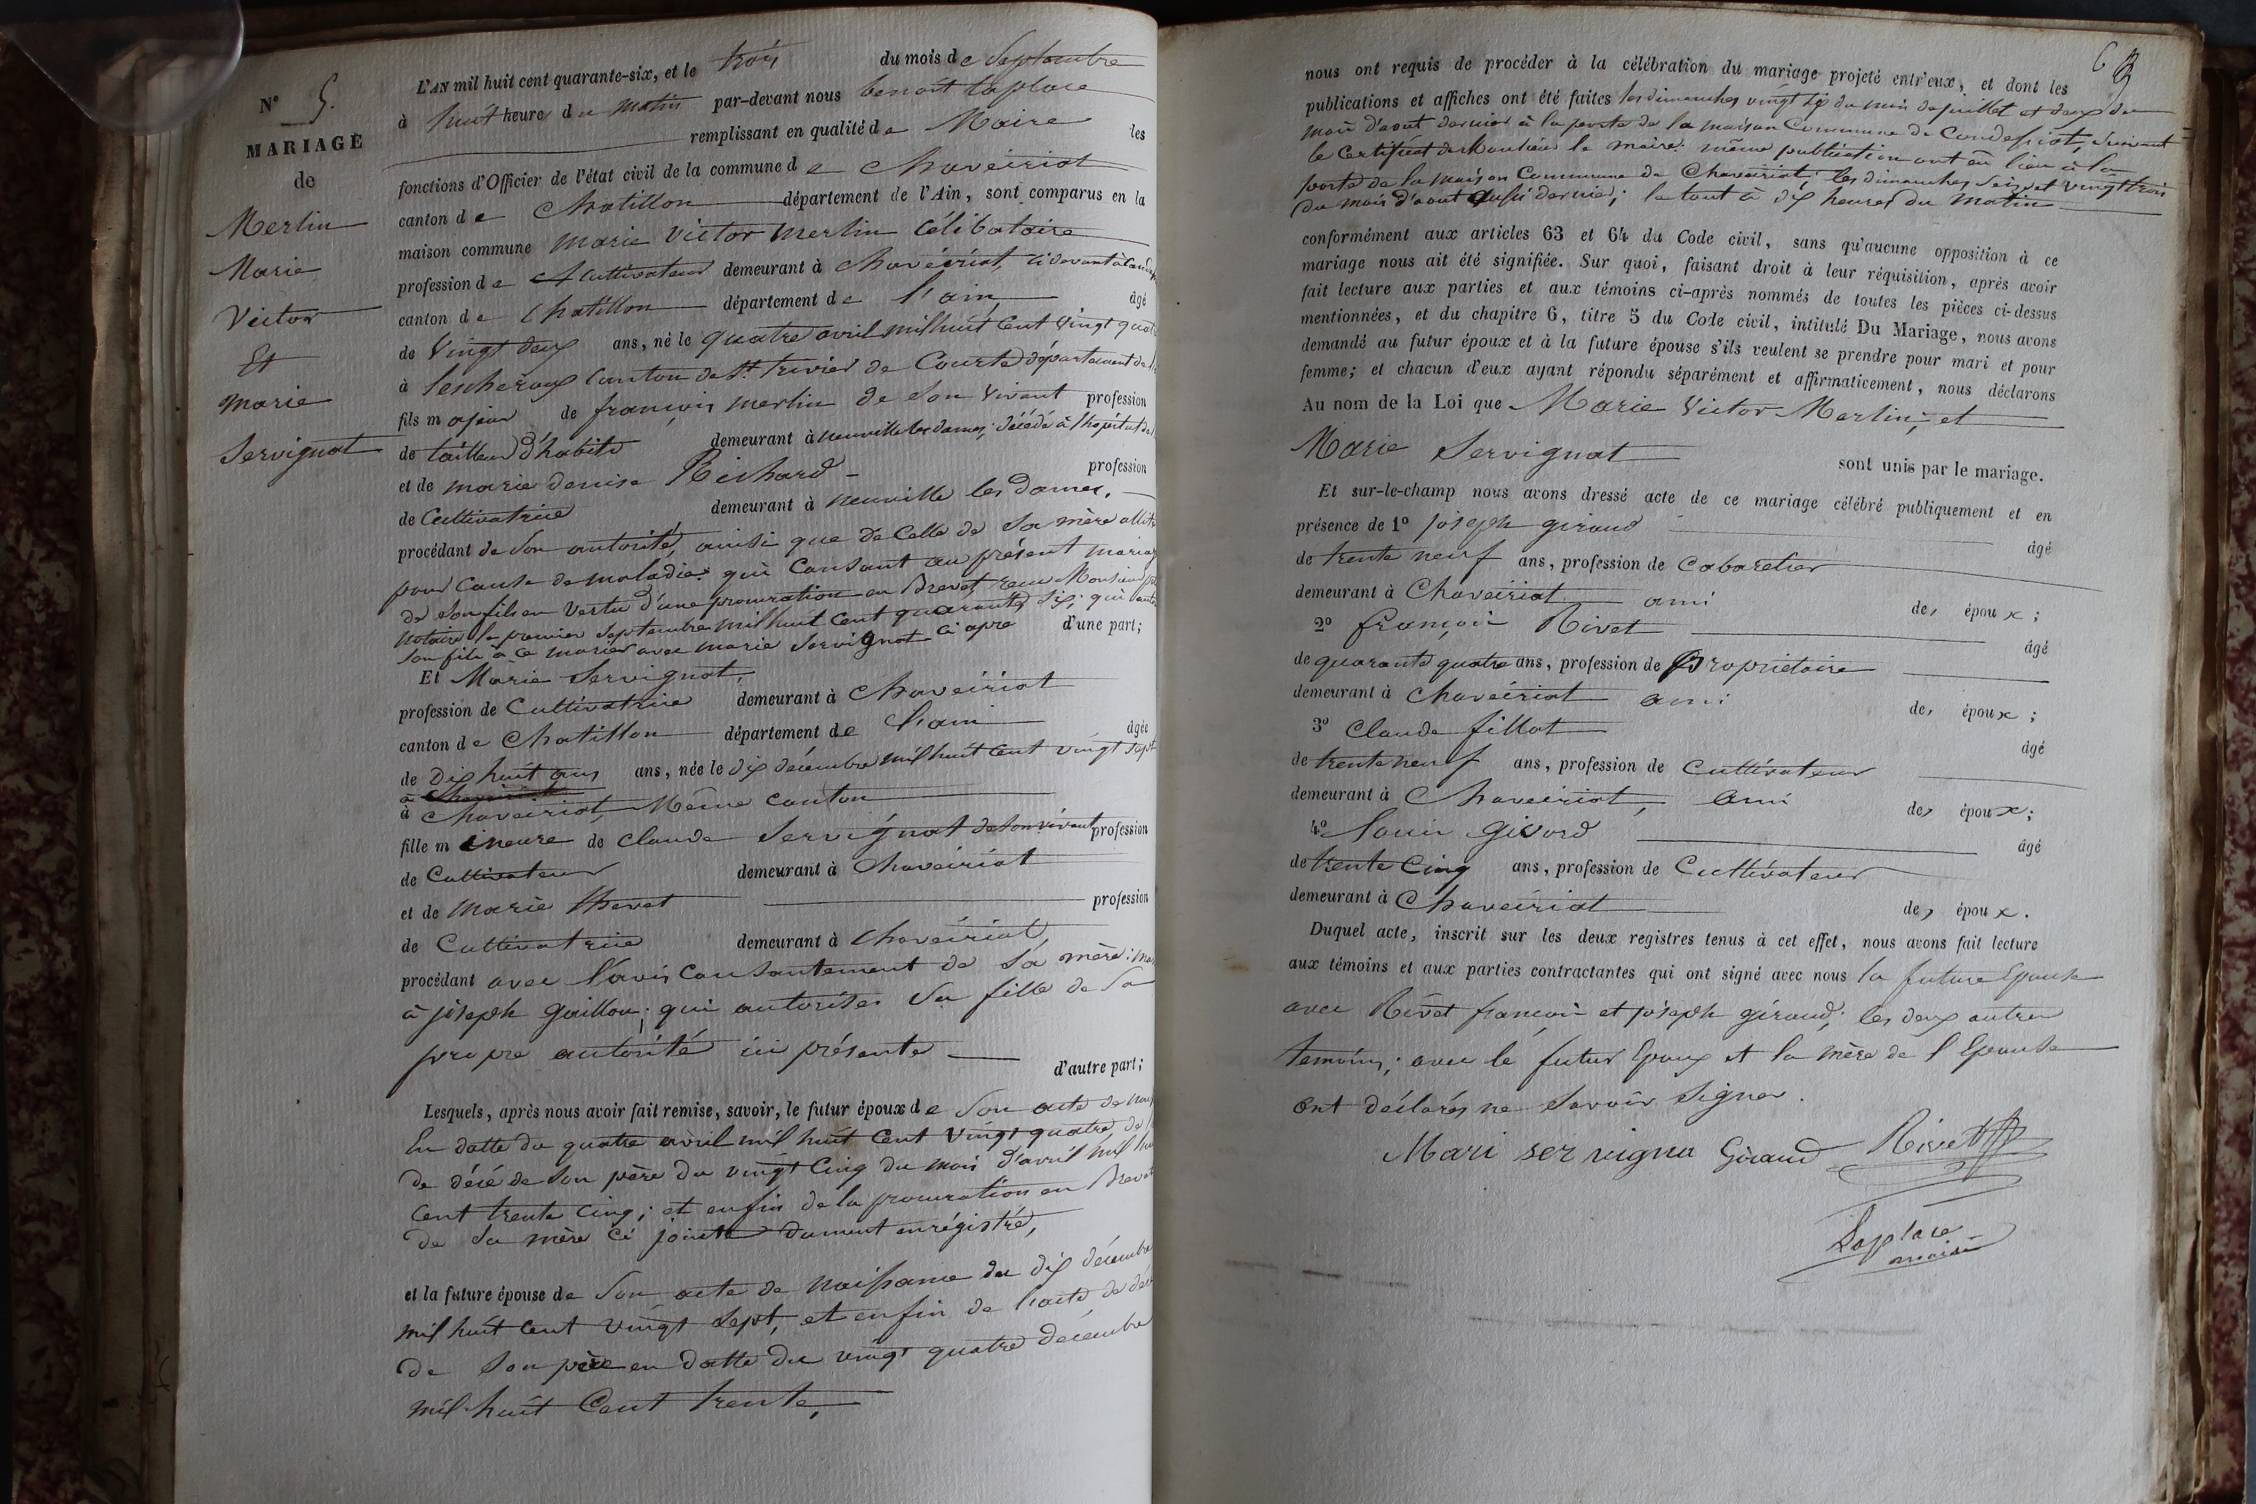 N° 5.
MARIAGE
de
Merlin
Marie
Victor
Et
Marie
Servignat
L'AN mil huit cent quarante-six, et le trois du mois de Septembre
à huit heures du matin par-devant nous benoit laplace
remplissant en qualité de Maire les
fonctions d'Officier de l'état civil de la commune de Chaveiriat
canton de Chatillon département de l'Ain, sont comparus en la
maison commune Marie Victor Merlin Célibataire
profession de Cultivateur demeurant à Chaveiriat, ci devant à
canton de Chatillon département de l'ain, âgé
de Vingt deux ans, né le quatre avril mil huit Cent Vingt
à lescheroux Canton de St. trivier de Courte département de
fils majeur de françois merlin de Son Vivant profession
de tailleur d'habits demeurant à neuville les dames, décédé à l'hopital de
et de marie denise Richard profession
de Cultivatrice demeurant à neuville les Dames,
procédant de Son autorité, ainsi que de Celle de Sa mère
pour Cause de maladie: qui Consant au présent
de son fils en Vertu d'une procuration en Brevet, reçu Monsieur
notaire le premier Septembre mil huit Cent quarante Six; qui
Son fils à ce marier avec marie Servignat Ci apre d'une part;
Et Marie Servignat,
profession de Cultivatrice demeurant à Chaveiriat
canton de Chatillon département de l'ain âgée
de Dix huit ans ans, née le dix décembre mil huit Cent vingt Sept
à Chaveiriat, Même Canton
fille mineure de Claude Servignat de Son vivant profession
de Cultivateur demeurant à Chaveiriat
et de Marie thevet profession
de Cultivatrice demeurant à Chaveiriat,
procédant avec l'avis Consantement de Sa mère:
à joseph Guillon; qui autorises Sa fille de Sa
propre autorité ici présente d'autre part;
Lesquels, après nous avoir fait remise, savoir, le futur époux de Son acte de
En datte du quatre avril mil huit Cent Vingt quatre de
de décé de Son père du vingt Cinq du mois d'avril mil
Cent trente Cinq; et enfin de la procuration en Brevet
de Sa mère Ci jointe dument enrégistré,
et la future épouse de Son acte de naissance du dix décembre
mil huit Cent vingt Sept, et enfin de l'acte de
de Son père en datte du vingt quatre décembre
mil huit Cent trente,
63
nous ont requis de procéder à la célébration du mariage projeté entr'eux, et dont les
publications et affiches ont été faites les dimanches vingt Six du mois de juillet et deux du
mois d'aout dernier à la porte de la maison Commune de Condessiat, Suivant
le Certificat de Monsieur le maire: même publication ont eu lieu à la
porte de la maison Commune de Chaveiriat: les dimanches Seize et vingt trois
du mois d'aout aussi dernier; le tout à dix heures du matin
conformément aux articles 63 et 64 du Code civil, sans qu'aucune opposition à ce
mariage nous ait été signifiée. Sur quoi, faisant droit à leur réquisition, après avoir
fait lecture aux parties et aux témoins ci-après nommés de toutes les pièces ci-dessus
mentionnées, et du chapitre 6, titre 5 du Code civil, intitulé Du Mariage, nous avons
demandé au futur époux et à la future épouse s'ils veulent se prendre pour mari et pour
femme; et chacun d'eux ayant répondu séparément et affirmativement, nous déclarons
Au nom de la Loi que Marie Victor Merlin; et
Marie Servignat sont unis par le mariage.
Et sur-le-champ nous avons dressé acte de ce mariage célébré publiquement et en
présence de 1° joseph giraud âgé
de trente neuf ans, profession de Cabaretier
demeurant à Chaveiriat ami des époux;
2° françois Rivet âgé
de quarante quatre ans, profession de Propriétaire
demeurant à Chaveiriat ami des époux;
3° Claude fillot âgé
de trente neuf ans, profession de Cultivateur
demeurant à Chaveiriat, ami des époux;
4° louis givord âgé
de trente Cinq ans, profession de Cultivateur
demeurant à Chaveiriat des époux.
Duquel acte, inscrit sur les deux registres tenus à cet effet, nous avons fait lecture
aux témoins et aux parties contractantes qui ont signé avec nous la future Epouse
avec Rivet françois et joseph giraud; les deux autres
temoins; avec le futur Epoux et la mère de l'Epouse
ont déclarés ne Savoir Signer.
Mari servigna Giraud Rivet
Laplace
maire